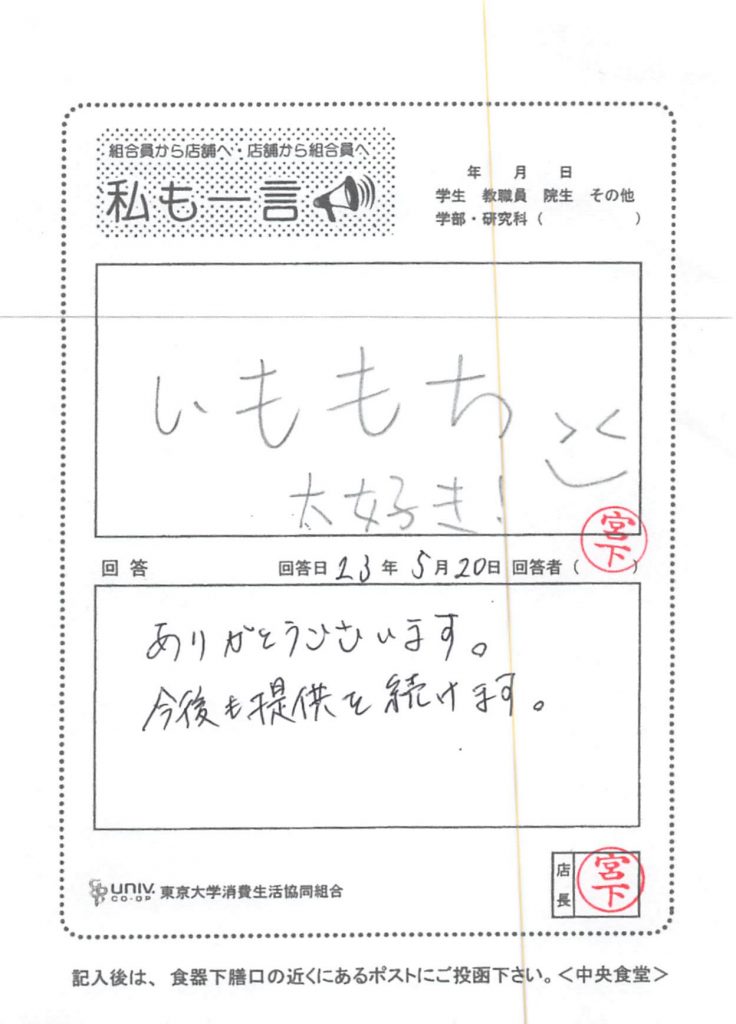 組合員から店舗へ・店舗から組合員へ
私も一言
年 月 日
学生 教職員 院生 その他
学部・研究科（ ）
いももち
大好き!
回答 回答日23年5月20日 回答者（宮下）
ありがとうございます。
今後も提供を続けます。
店長 宮下
UNIV. CO-OP 東京大学消費生活協同組合
記入後は、食器下膳口の近くにあるポストにご投函下さい。＜中央食堂＞